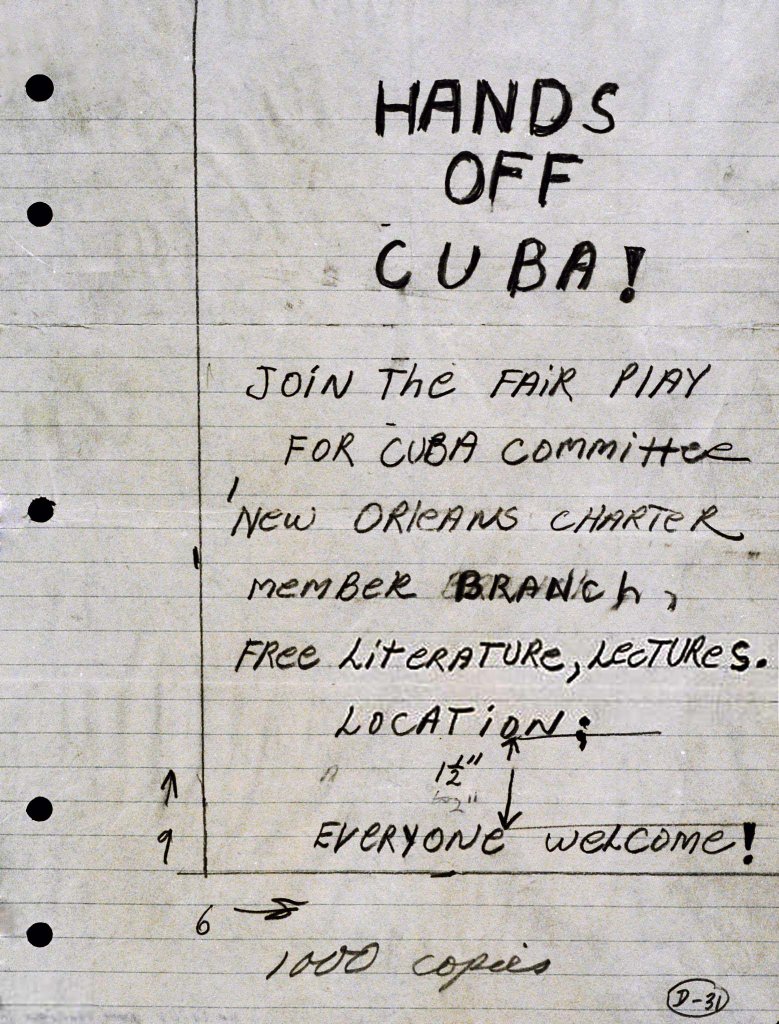 HANDS
OFF
CUBA!
JOIN The FAIR PlAY
FOR CUBA committee
New ORleANS CHARTER
memBeR BRANch,
FRee LiteRATURe, LecTUReS.
LOCATION;
1½"
EVERYONE WELCOME!
9
6
1000 copies
D-31